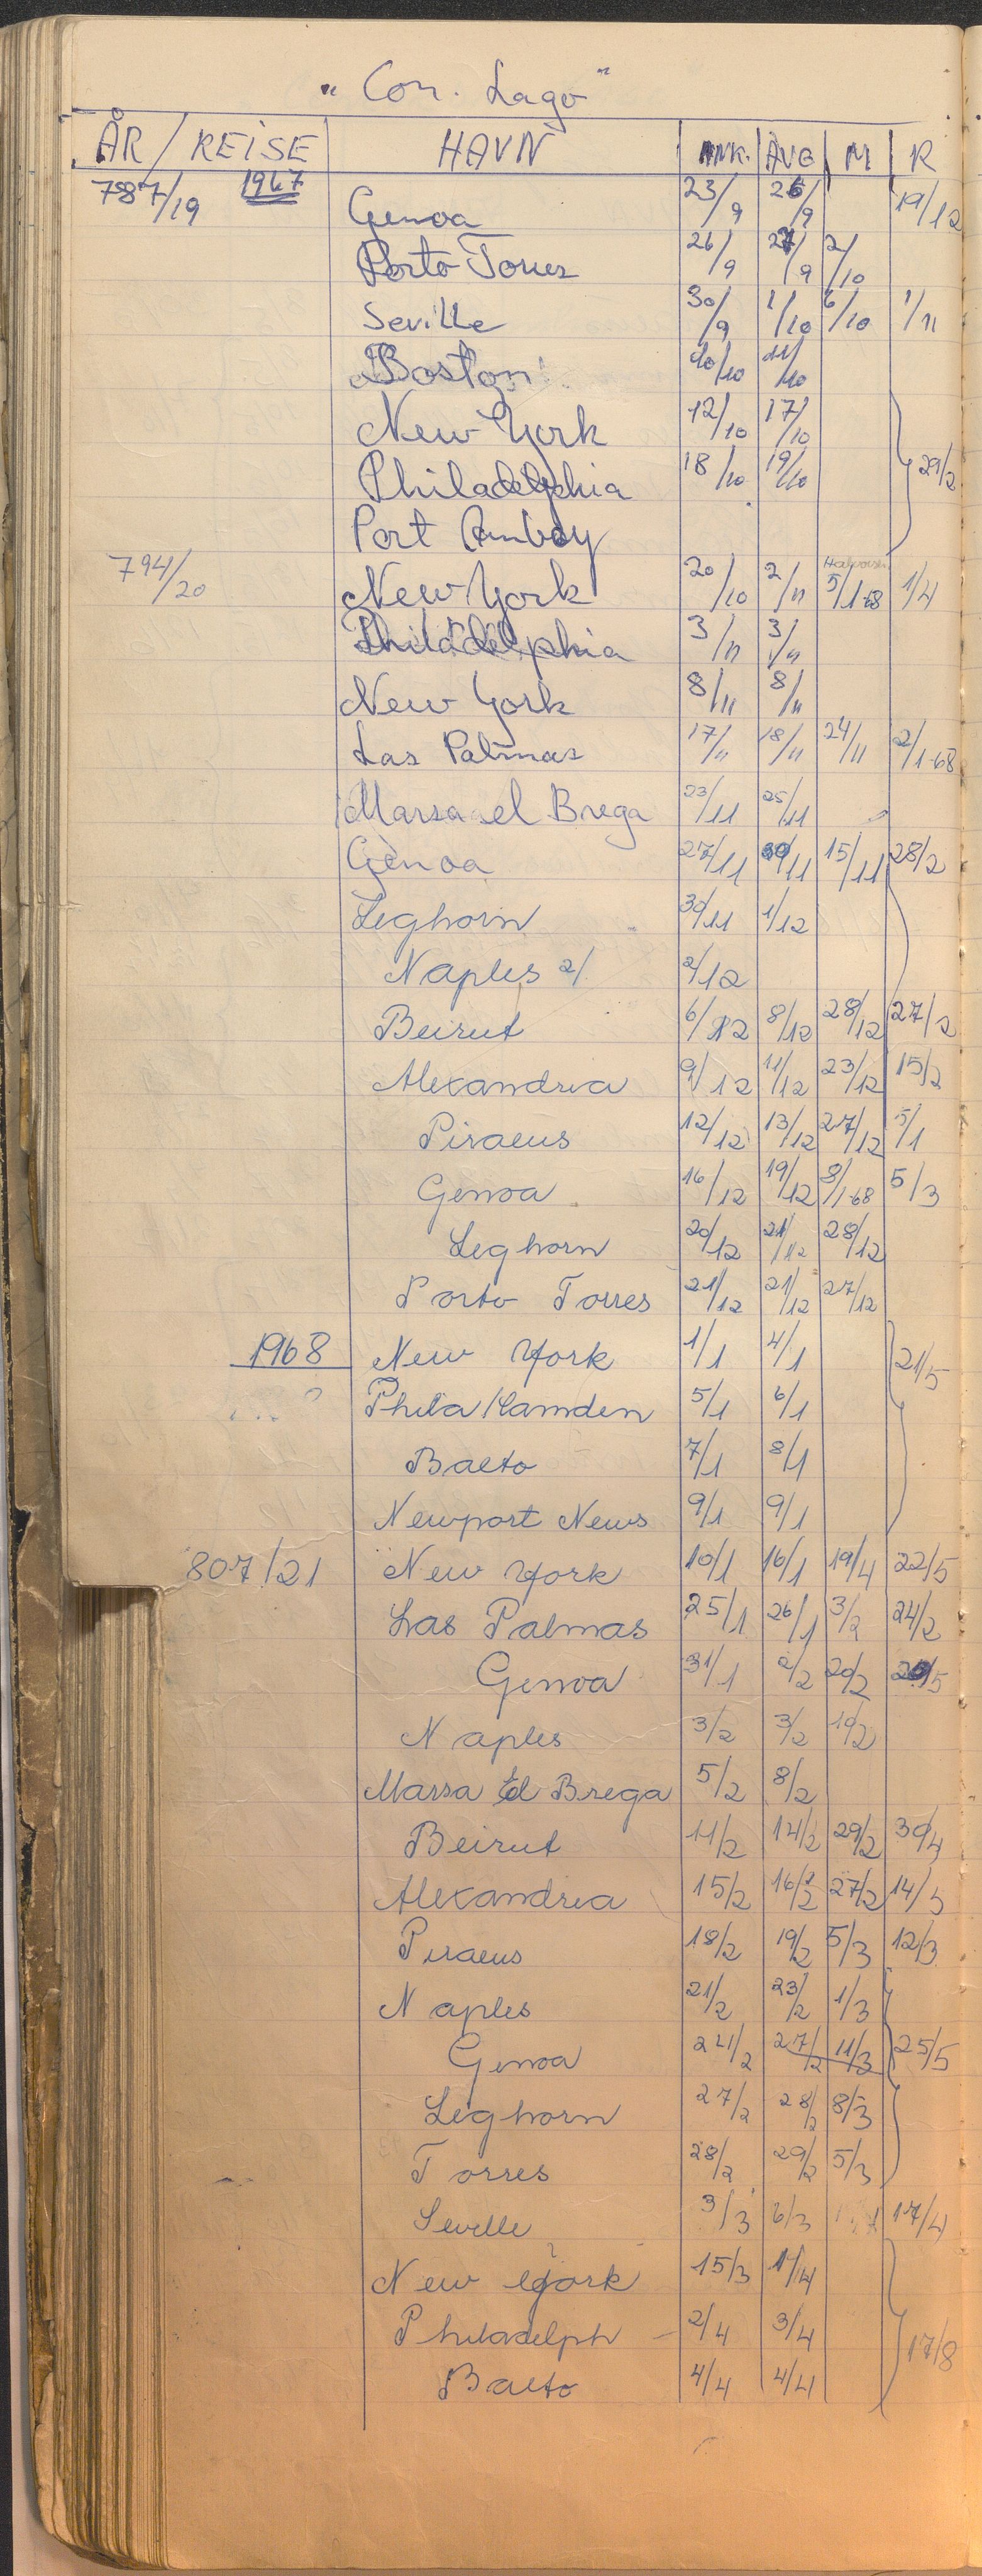 "Con. Lago"
ÅR / REISE HAVN ANK. AVG M R
787/19 1967 Genoa 23/9 26/9 19/12
Porto Torres 26/9 27/9 2/10
Seville 30/9 1/10 6/10 1/11
Boston 10/10 11/10
New York 12/10 17/10
Philadelphia 18/10 19/10 29/2
Port Amboy
794/20 New York 20/10 2/11 5/1-68 1/4
Philadelphia 3/11 3/11
New York 8/11 8/11
Las Palmas 17/11 18/11 24/11 2/1-68
Marsa el Brega 23/11 25/11
Genoa 27/11 30/11 15/11 28/2
Leghorn 30/11 1/12
Naples 2/ 2/12
Beirut 6/12 8/12 28/12 27/2
Alexandria 9/12 11/12 23/12 15/2
Piraeus 12/12 13/12 27/12 5/1
Genoa 16/12 19/12 8/1-68 5/3
Leghorn 20/12 21/12 28/12
Porto Torres 21/12 21/12 27/12
1968 New York 1/1 4/1 21/5
Phila/Camden 5/1 6/1
Balto 7/1 8/1
Newport News 9/1 9/1
807/21 New York 10/1 16/1 19/4 22/5
Las Palmas 25/1 26/1 3/2 24/2
Genoa 31/1 2/2 20/2
Naples 3/2 3/2 19/2
Marsa El Brega 5/2 8/2
Beirut 11/2 14/2 29/2 30/4
Alexandria 15/2 16/2 27/2 14/3
Piraeus 18/2 19/2 5/3 12/3
Naples 21/2 23/2 1/3
Genoa 24/2 27/2 11/3 25/5
Leghorn 27/2 28/2 8/3
Torres 28/2 29/2 5/3
Seville 3/3 6/3 17/4
New York 15/3 1/4
Philadelph 2/4 3/4 17/8
Balto 4/4 4/4